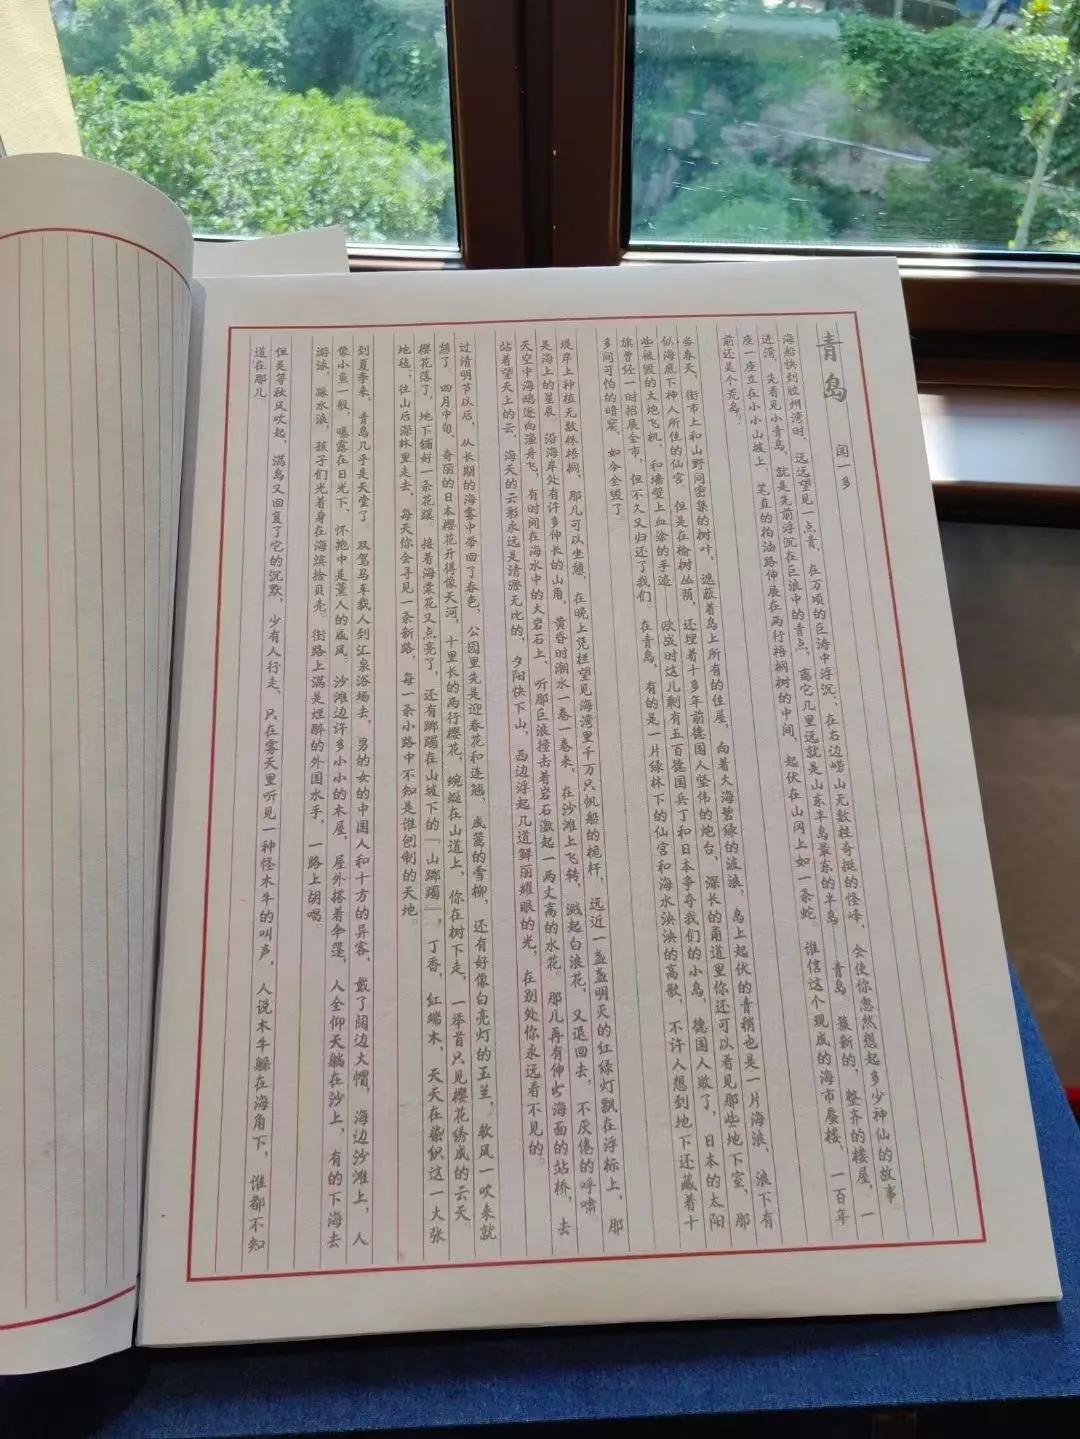 青岛
闻一多
海船快到胶州湾时，远远望见一点青，在万顷的巨涛中浮沉、在右边崂山无数柱奇挺的怪峰，会使你忽然想起多少神仙的故事。
进湾，先看见小青岛，就是先前浮沉在巨浪中的青点，离它几里远就是山东半岛最东的半岛——青岛。簇新的，整齐的楼屋，一
座一座立在小小山坡上，笔直的柏油路伸展在两行梧桐树的中间，起伏在山冈上如一条蛇。谁信这个现成的海市蜃楼，一百年
前还是个荒岛？
当春天，街市上和山野间密集的树叶，遮蔽着岛上所有的住屋，向着大海碧绿的波浪，岛上起伏的青梢也是一片海浪，浪下有
似海底下神人所住的仙宫。但是在榆树丛荫，还埋着十多年前德国人坚伟的炮台，深长的甬道里你还可以看见那些地下室，那
些被毁的大炮飞机，和墙壁上血涂的手迹——欧战时这儿剩有五百德国兵丁和日本争夺我们的小岛，德国人败了，日本的太阳
旗曾经一时招展全市，但不久又归还了我们。在青岛，有的是一片绿林下的仙宫和海水泱泱的高歌，不许人想到地下还藏着十
多间可怕的暗窟，如今全毁了。
堤岸上种植无数株梧桐，那儿可以坐憩，在晚上凭栏望见海湾里千万只帆船的桅杆，远近一盏盏明灭的红绿灯飘在浮标上，那
是海上的星辰。沿海岸处有许多伸长的山角，黄昏时潮水一卷一卷来，在沙滩上飞转，溅起白浪花，又退回去，不厌倦的呼啸。
天空中海鸥逐向渔舟飞，有时间在海水中的大岩石上、听那巨浪撞击着岩石激起一两丈高的水花。那儿再有伸出海面的站桥，去
站着望天上的云，海天的云彩永远是清澄无比的，夕阳快下山，西边浮起几道鲜丽耀眼的光，在别处你永远看不见的。
过清明节以后，从长期的海雾中带回了春色，公园里先是迎春花和连翘，成篱的雪柳，还有好像白亮灯的玉兰，软风一吹来就
憩了。四月中旬、奇丽的日本樱花开得像天河，十里长的两行樱花，蜿蜒在山道上，你在树下走，一举首只见樱花绣成的云天。
樱花落了，地下铺好一条花蹊。接着海棠花又点亮了，还有踯躅在山坡下的「山踯躅」，丁香，红端木，天天在染织这一大张
地毡；往山后深林里走去，每天你会寻见一条新路，每一条小路中不知是谁创制的天地。
到夏季来，青岛几乎是天堂了。双驾马车载人到汇泉浴场去，男的女的中国人和十方的异客，戴了阔边大帽，海边沙滩上，人
像小鱼一般，曝露在日光下、怀抱中是薰人的咸风。沙滩边许多小小的木屋，屋外搭着伞篷，人全仰天躺在沙上，有的下海去
游泳，踩水浪，孩子们光着身在海滨拾贝壳。街路上满是烂醉的外国水手，一路上胡唱。
但是等秋风吹起，满岛又回复了它的沉默，少有人行走、只在雾天里听见一种怪木牛的叫声，人说木牛躲在海角下，谁都不知
道在那儿